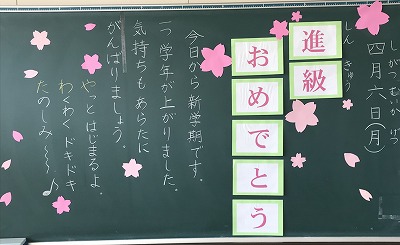 しがつむいか げつ
四月六日(月)
しん きゅう
進級
おめでとう
今日から新学期です。
一つ学年が上がりました。
気持ちもあらたに
がんばりましょう。
やっとはじまるよ。
わくわくドキドキ
たのしみ〜〜♪